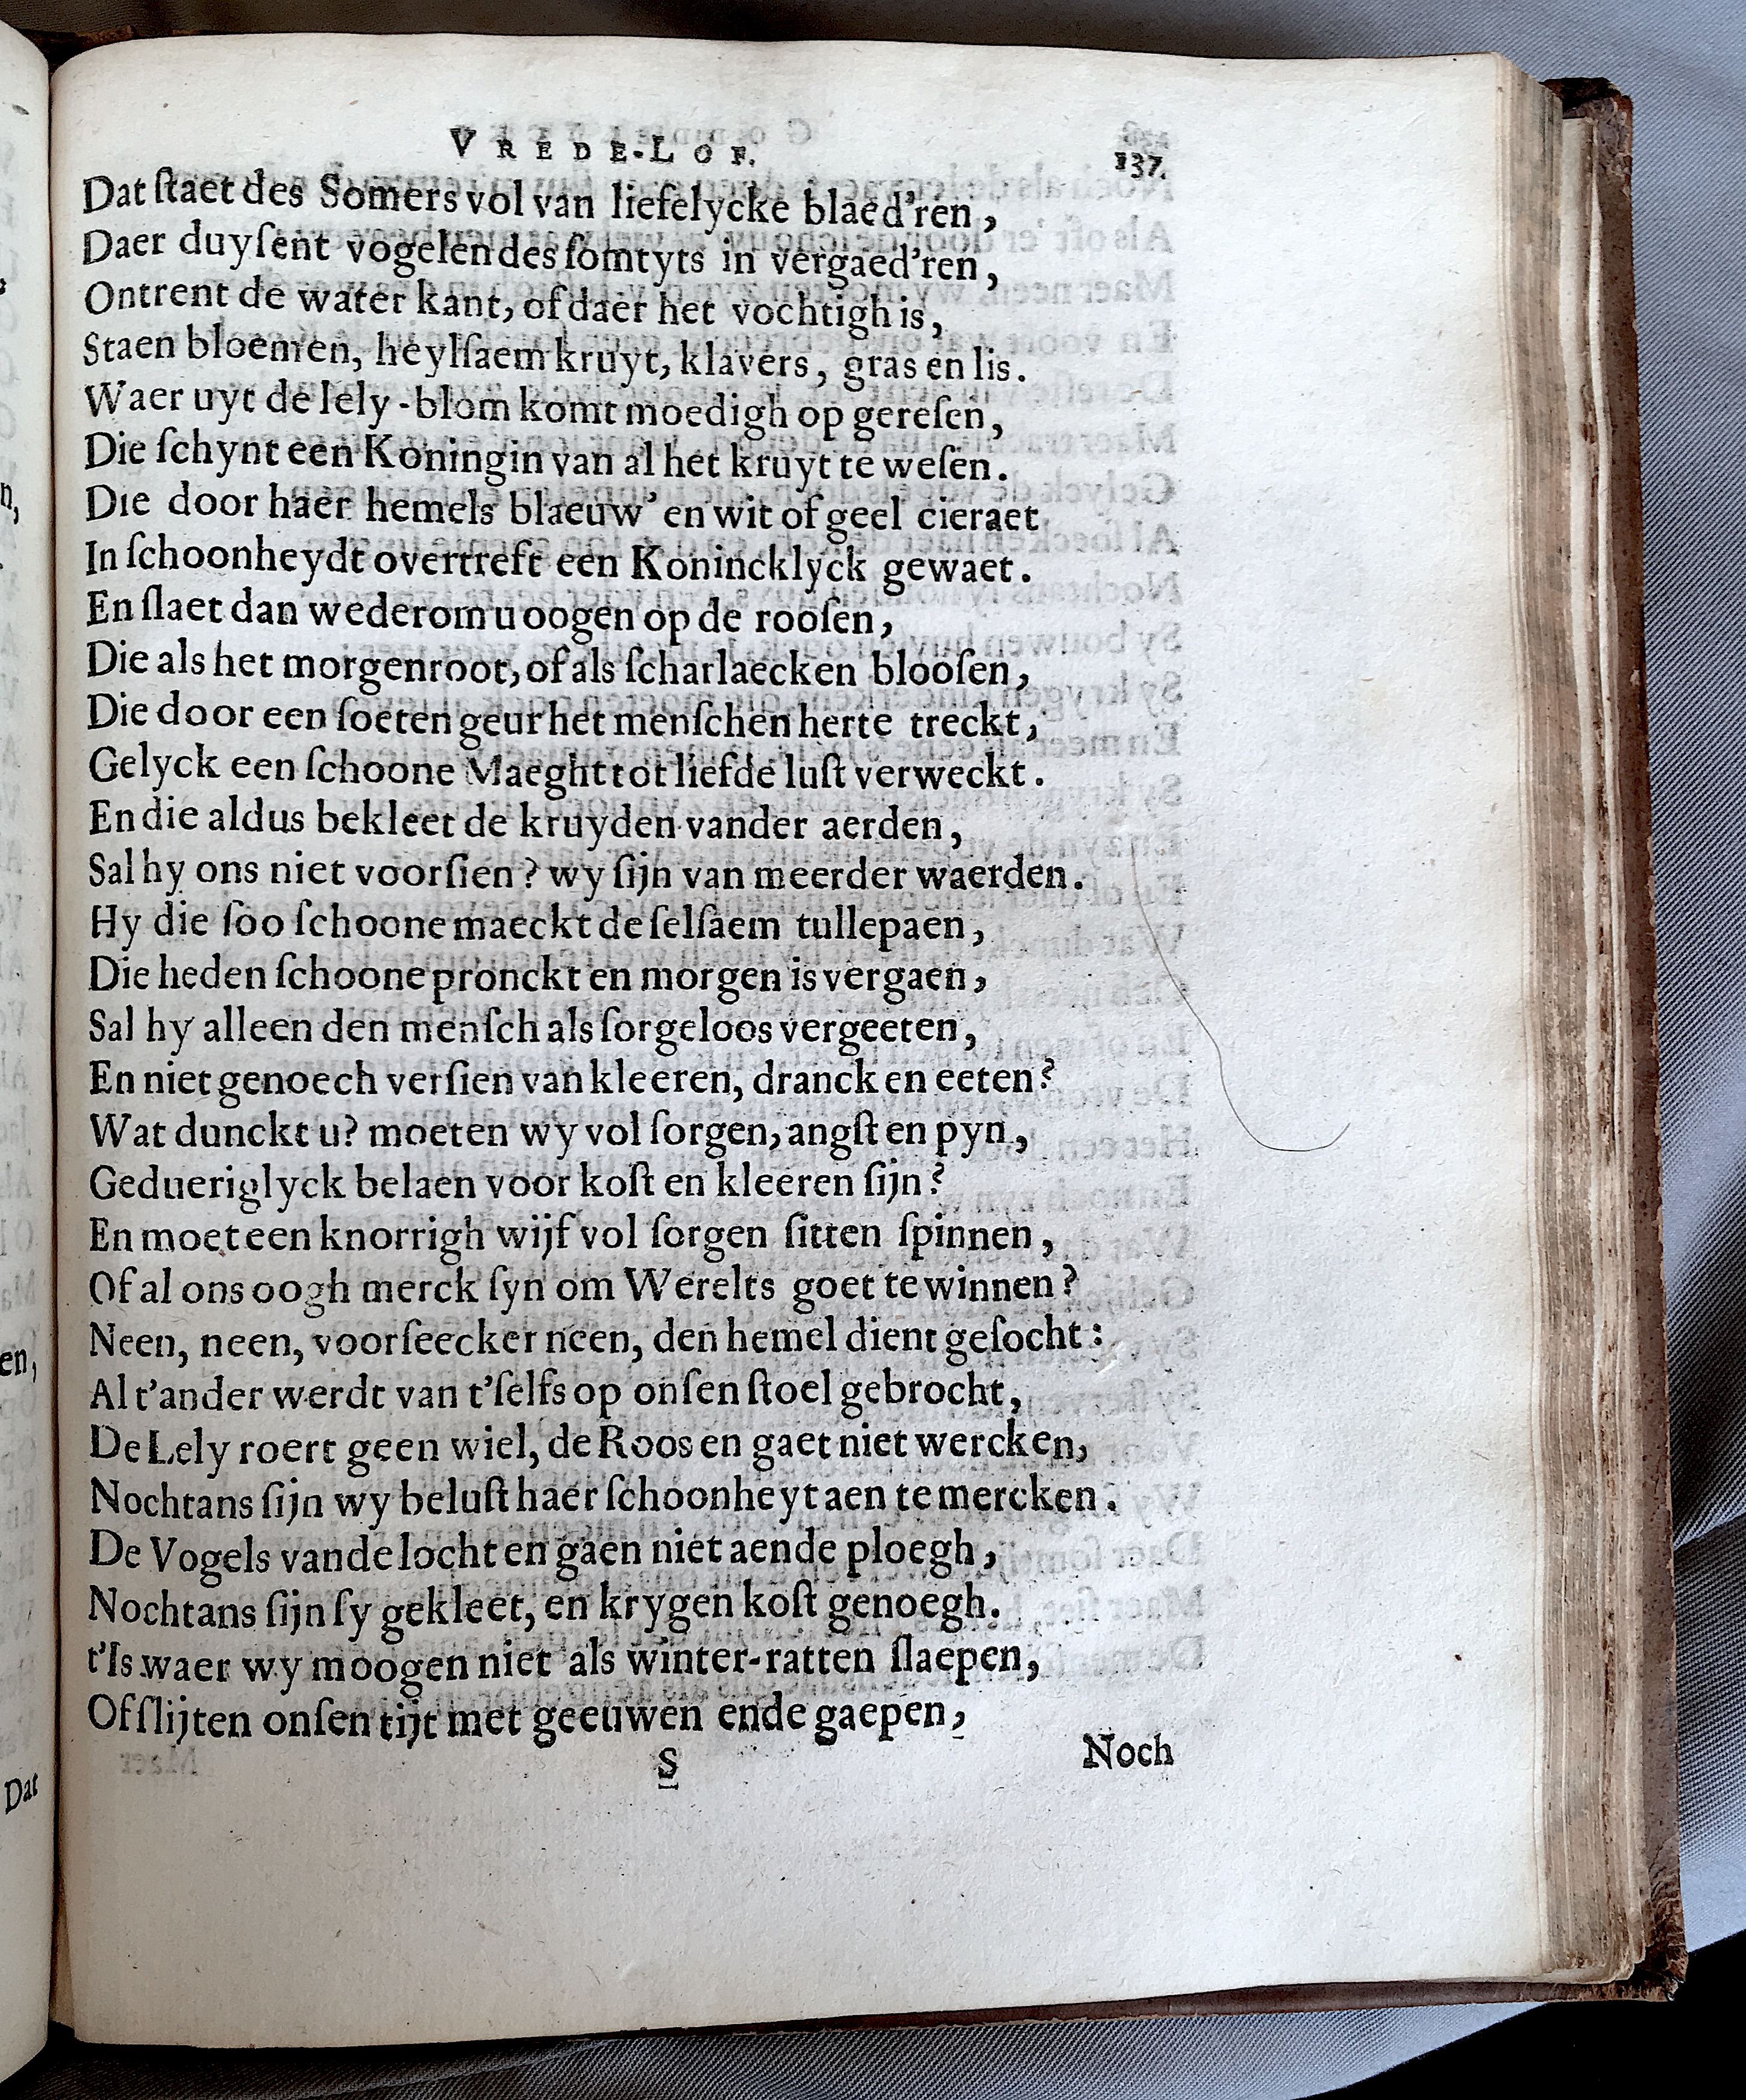 VREDE-LOF. 137.
Dat ſtaet des Somers vol van liefelycke blaed'ren,
Daer duyſent vogelen des ſomtyts in vergaed'ren,
Ontrent de water kant, of daer het vochtigh is,
Staen bloemen, heylſaem kruyt, klavers, gras en lis.
Waer uyt de lely-blom komt moedigh op gereſen,
Die ſchynt een Koningin van al het kruyt te weſen.
Die door haer hemels blaeuw' en wit of geel cieraet
In ſchoonheydt overtreft een Konincklyck gewaet.
En ſlaet dan wederom u oogen op de rooſen,
Die als het morgenroot, of als ſcharlaecken blooſen,
Die door een ſoeten geur het menſchen herte treckt,
Gelyck een ſchoone Maeght tot liefde luſt verweckt.
En die aldus bekleet de kruyden vander aerden,
Sal hy ons niet voorſien? wy ſijn van meerder waerden.
Hy die ſoo ſchoone maeckt de ſelſaem tullepaen,
Die heden ſchoone pronckt en morgen is vergaen,
Sal hy alleen den menſch als ſorgeloos vergeeten,
En niet genoech verſien van kleeren, dranck en eeten?
Wat dunckt u? moeten wy vol ſorgen, angſt en pyn,
Gedueriglyck belaen voor koſt en kleeren ſijn?
En moet een knorrigh wijf vol ſorgen ſitten ſpinnen,
Of al ons oogh merck ſyn om Werelts goet te winnen?
Neen, neen, voorſeecker neen, den hemel dient geſocht:
Al t'ander werdt van t'ſelfs op onſen ſtoel gebrocht,
De Lely roert geen wiel, de Roos en gaet niet wercken,
Nochtans ſijn wy beluſt haer ſchoonheyt aen te mercken.
De Vogels vande locht en gaen niet aende ploegh,
Nochtans ſijn ſy gekleet, en krygen koſt genoegh.
t'Is waer wy moogen niet als winter-ratten ſlaepen,
Of ſlijten onſen tijt met geeuwen ende gaepen,
S Noch
n,
en,
Dat